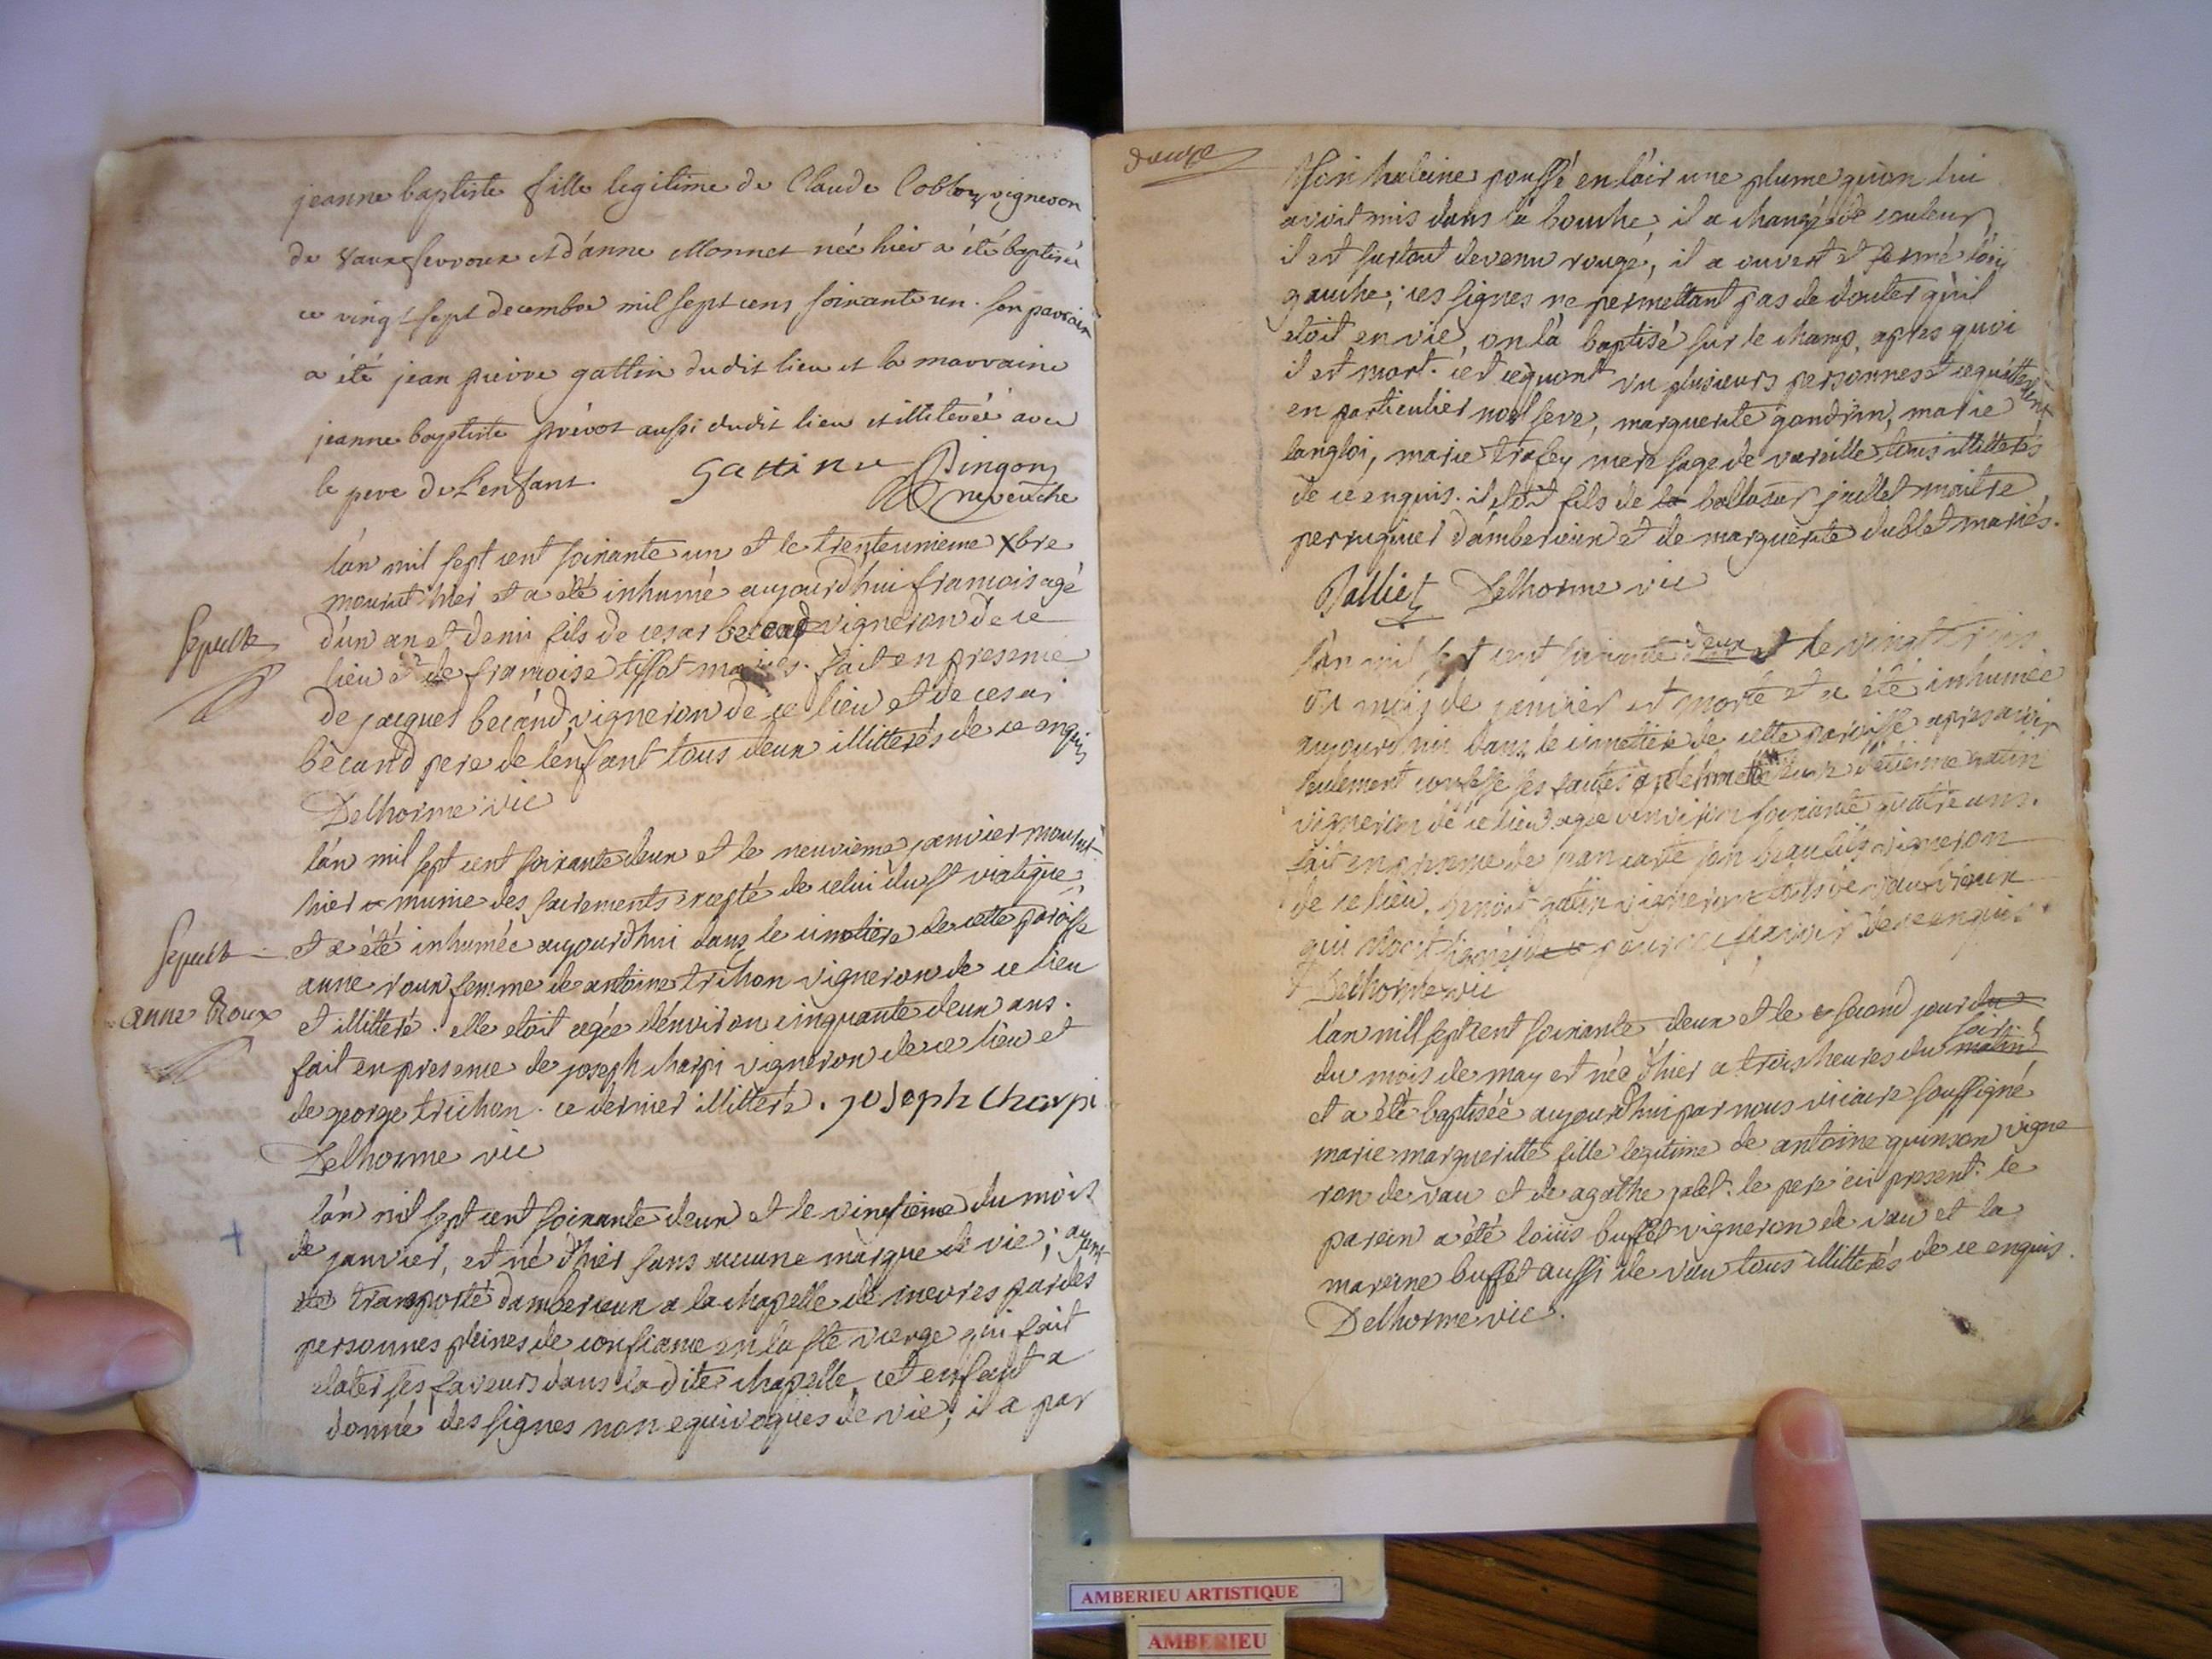 jeanne baptiste fille legitime de Claude vigneron
de et d'anne Monnet née hier a été baptisée
ce vingt sept decembre mil sept cens soixante un. Son parrain
a été jean pierre gattin dudit lieu et la marraine
jeanne baptiste prévot aussi dudit lieu et illiterée avec
le pere de L'enfant. gattin
Sepult
l'an mil sept cent soixante un et le trente unieme Xbre
mourut hier et a été inhumé aujourd'hui francois agé
d'un an et demi fils de cesar becand vigneron de ce
lieu et de francoise tissot mariés. fait en presence
de jacques becand vigneron de ce lieu et de cesar
becand pere de l'enfant tous deux illitterés de ce enquis
Delhorme vic
Sepult
anne Roux
l'an mil sept cent soixante deux et le neuvieme janvier mourut
hier munie des sacrements excepté de celui du st viatique,
et a été inhumée aujourd'hui dans le cimetiere de cette paroisse
anne roux femme de antoine trichon vigneron de ce lieu
et illitteré. elle etoit agée d'environ cinquante deux ans.
fait en presence de joseph charpi vigneron de ce lieu et
de george trichon. ce dernier illitteré. joseph charpi
Delhorme vic
l'an mil sept cent soixante deux et le vingtieme du mois
de janvier, est né d'hier sans aucune marque de vie; ayant
été transporté d'amberieux a la chapelle de mevres par des
personnes pleines de confiance en la ste vierge qui fait
eclater ses faveurs dans la dite chapelle, cet enfant a
donné des signes non equivoques de vie; il a par
douze
son haleine poussé en l'air une plume qu'on lui
avoit mis dans la bouche, il a changé de couleur,
il est surtout devenu rouge, il a ouvert et fermé l'oeil
gauche; ces signes ne permettant pas de douter qu'il
etoit en vie, on l'a baptisé sur le champ, apres quoi
il est mort. c'est ce qu'ont vu plusieurs personnes et ce qu'attestent
en particulier noel seve, marguerite gandrin, marie
langloi, marie trafey mere sage de vareille tous illitterés
de ce enquis. il etoit fils de la baltasar juillet maitre
perruquier d'amberieux et de marguerite dublet mariés.
Delhorme vic
l'an mil sept cent soixante deux et le vingt trois
du mois de janvier est morte et a été inhumée
aujourd'hui dans le cimetiere de cette paroisse apres avoir
seulement confessé ses fautes d'etienne gatin
vigneron de ce lieu agée d'environ soixante quatre ans.
fait en presence de jean son beau fils vigneron
de ce lieu, benoit gatin vigneron
qui n'ont signé pour ne sçavoir de ce enquis.
Delhorme vic
l'an mill sept cent soixante deux et le second jour du
du mois de may est née d'hier a trois heures du matin soir
et a été baptisée aujourd'hui par nous vicaire soussigné
marie margueritte fille legitime de antoine quinson vigne
ron de vau et de agathe jalet. le pere ici present. le
parein a été louis buffet vigneron de vau et la
mareine buffet aussi de vau tous illitterés de ce enquis.
Delhorme vic.
AMBERIEU ARTISTIQUE
AMBERIEU